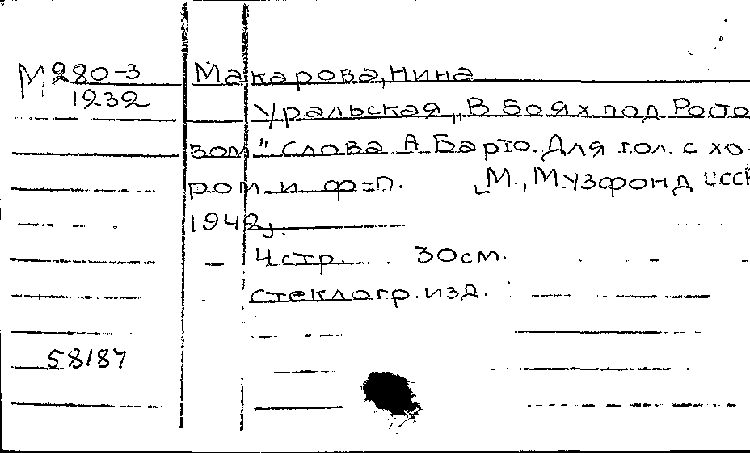 М280-3 Макарова, Нина
1232
Уральская „В боях под Росто
вом" Слова А. Барто. Для гол. с хо-
ром и ф-п. М., Музфонд СССР
1942г.
4 стр. 30см.
стеклогр. изд.
58187